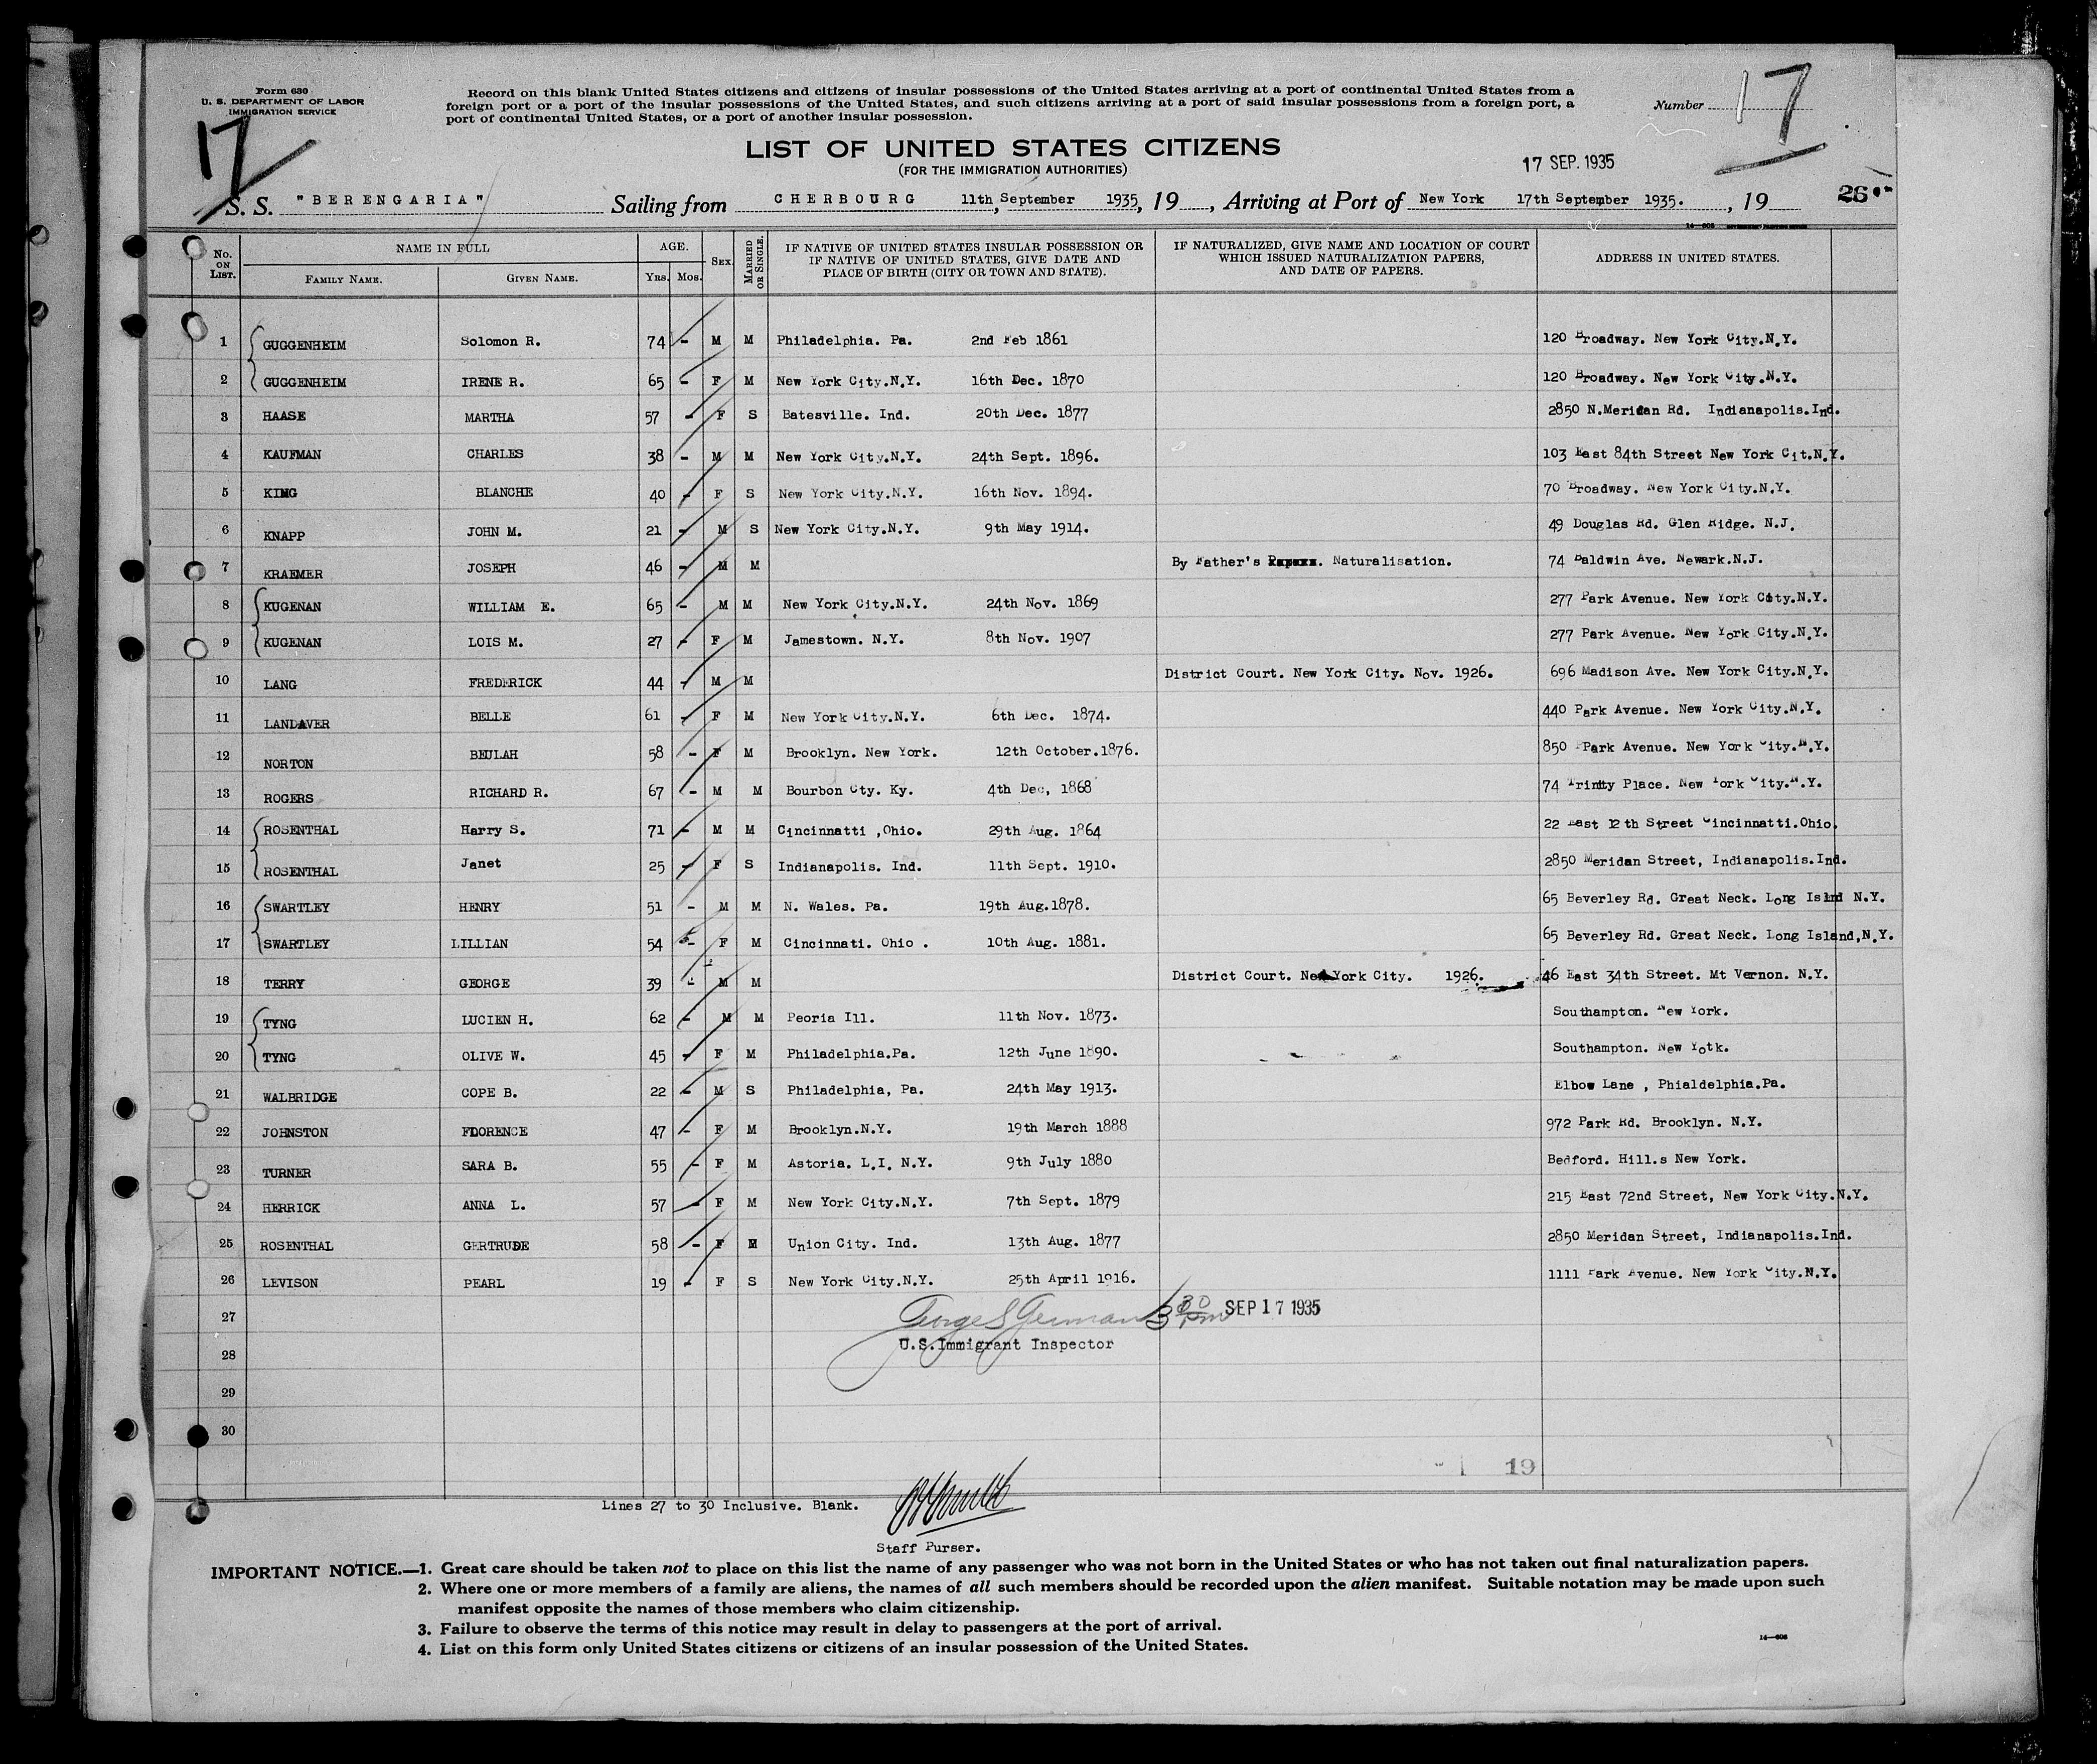 Form 630
U. S. DEPARTMENT OF LABOR
IMMIGRATION SERVICE
17
Record on this blank United States citizens and citizens of insular possessions of the United States arriving at a port of continental United States from a
foreign port or a port of the insular possessions of the United States, and such citizens arriving at a port of said insular possessions from a foreign port, a
port of continental United States, or a port of another insular possession.
Number 17
LIST OF UNITED STATES CITIZENS
(FOR THE IMMIGRATION AUTHORITIES)
17 SEP. 1935
S. S. "BERENGARIA" Sailing from CHERBOURG 11th September 1935, 19 , Arriving at Port of New York 17th September 1935. , 19 26
No. ON LIST. NAME IN FULL FAMILY NAME. GIVEN NAME. AGE. YRS. MOS. SEX. MARRIED OR SINGLE. IF NATIVE OF UNITED STATES INSULAR POSSESSION OR IF NATIVE OF UNITED STATES, GIVE DATE AND PLACE OF BIRTH (CITY OR TOWN AND STATE). IF NATURALIZED, GIVE NAME AND LOCATION OF COURT WHICH ISSUED NATURALIZATION PAPERS, AND DATE OF PAPERS. ADDRESS IN UNITED STATES.
1 GUGGENHEIM Solomon R. 74 - M M Philadelphia. Pa. 2nd Feb 1861 120 Broadway. New York City.N.Y.
2 GUGGENHEIM IRENE R. 65 - F M New York City.N.Y. 16th Dec. 1870 120 Broadway. New York City.N.Y.
3 HAASE MARTHA 57 - F S Batesville. Ind. 20th Dec. 1877 2850 N.Meridan Rd. Indianapolis.Ind.
4 KAUFMAN CHARLES 38 - M M New York City.N.Y. 24th Sept. 1896. 103 East 84th Street New York Cit.N.Y.
5 KING BLANCHE 40 - F S New York City.N.Y. 16th Nov. 1894. 70 Broadway. New York City.N.Y.
6 KNAPP JOHN M. 21 - M S New York City.N.Y. 9th May 1914. 49 Douglas Rd. Glen Ridge. N.J.
7 KRAEMER JOSEPH 46 - M M By Father's . Naturalisation. 74 Baldwin Ave. Newark.N.J.
8 KUGENAN WILLIAM E. 65 - M M New York City.N.Y. 24th Nov. 1869 277 Park Avenue. New York City.N.Y.
9 KUGENAN LOIS M. 27 - F M Jamestown. N.Y. 8th Nov. 1907 277 Park Avenue. New York City.N.Y.
10 LANG FREDERICK 44 - M M District Court. New York City. Nov. 1926. 696 Madison Ave. New York City.N.Y.
11 LANDAVER BELLE 61 - F M New York City.N.Y. 6th Dec. 1874. 440 Park Avenue. New York City.N.Y.
12 NORTON BEULAH 58 - F M Brooklyn. New York. 12th October.1876. 850 Park Avenue. New York City.N.Y.
13 ROGERS RICHARD R. 67 - M M Bourbon Cty. Ky. 4th Dec, 1868 74 Trinity Place. New York City.N.Y.
14 ROSENTHAL Harry S. 71 - M M Cincinnatti ,Ohio. 29th Aug. 1864 22 East 12th Street Cincinnatti.Ohio.
15 ROSENTHAL Janet 25 - F S Indianapolis. Ind. 11th Sept. 1910. 2850 Meridan Street, Indianapolis.Ind.
16 SWARTLEY HENRY 51 - M M N. Wales. Pa. 19th Aug.1878. 65 Beverley Rd. Great Neck. Long Islnd N.Y.
17 SWARTLEY LILLIAN 54 - F M Cincinnati. Ohio . 10th Aug. 1881. 65 Beverley Rd. Great Neck. Long Island,N.Y.
18 TERRY GEORGE 39 - M M District Court. New York City. 1926. 46 East 34th Street. Mt Vernon. N.Y.
19 TYNG LUCIEN H. 62 - M M Peoria Ill. 11th Nov. 1873. Southampton. New York.
20 TYNG OLIVE W. 45 - F M Philadelphia.Pa. 12th June 1890. Southampton. New Yotk.
21 WALBRIDGE COPE B. 22 - M S Philadelphia, Pa. 24th May 1913. Elbow Lane , Phialdelphia.Pa.
22 JOHNSTON FLORENCE 47 - F M Brooklyn.N.Y. 19th March 1888 972 Park Rd. Brooklyn. N.Y.
23 TURNER SARA B. 55 - F M Astoria. L.I. N.Y. 9th July 1880 Bedford. Hill.s New York.
24 HERRICK ANNA L. 57 - F M New York City.N.Y. 7th Sept. 1879 215 East 72nd Street, New York City.N.Y.
25 ROSENTHAL GERTRUDE 58 - F M Union City. Ind. 13th Aug. 1877 2850 Meridan Street, Indianapolis.Ind.
26 LEVISON PEARL 19 - F S New York City.N.Y. 25th April 1916. 1111 Park Avenue. New York City.N.Y.
27 George S German 3 30 pm SEP 17 1935
U.S.Immigrant Inspector
28
29
30
19
Lines 27 to 30 Inclusive. Blank.
Staff Purser.
IMPORTANT NOTICE.—1. Great care should be taken not to place on this list the name of any passenger who was not born in the United States or who has not taken out final naturalization papers.
2. Where one or more members of a family are aliens, the names of all such members should be recorded upon the alien manifest. Suitable notation may be made upon such
manifest opposite the names of those members who claim citizenship.
3. Failure to observe the terms of this notice may result in delay to passengers at the port of arrival.
4. List on this form only United States citizens or citizens of an insular possession of the United States.
14—606